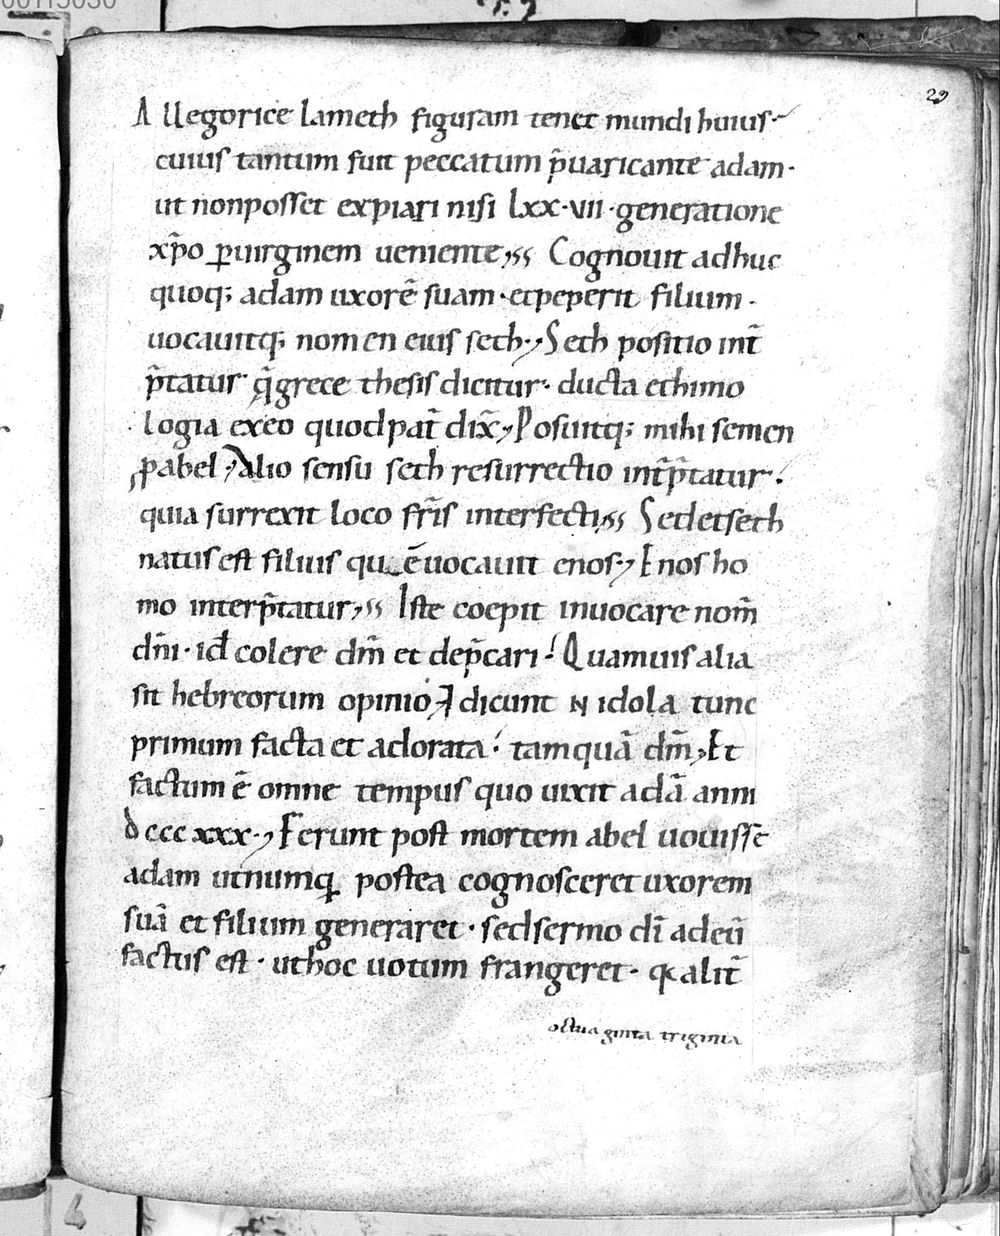 29
Allegorice lameth figuram tenet mundi huius·
cuius tantum fuit peccatum p̃uaricante adam·
ut nonposset expiari nisi lxx·vii·generatione
xp̃o ꝑuirginem ueniente, Cognouit adhuc
quoq; adam uxorẽ suam·etpeperit filium·
uocauitq; nomen eius seth·, Seth positio int̃
p̃tatur· q̃grece thesis dicitur· ducta ethimo
logia exeo quod pat̃ dix̃, Posuitq; mihi semen
ꝑabel, Alio sensu seth resurrectio int̃p̃tatur·
quia surrexit loco fr̃is interfecti, Sedetseth
natus est filius quẽuocauit enos·, Enos ho
mo interp̃tatur, Iste coepit inuocare nom̃
dñi· id colere dm̃ et dep̃cari· Quamuis alia
sit hebreorum opinio, dicunt idola tunc
primum facta et adorata· tamquã dm̃, Et
factum ẽ omne tempus quo uixit adã anni
dcccxxx·, Ferunt post mortem abel uouissẽ
adam utnumqꝫ postea cognosceret uxorem
suã et filium generaret· sedsermo dĩ adeũ
factus est· uthoc uotum frangeret· alit̃
octuaginta triginta